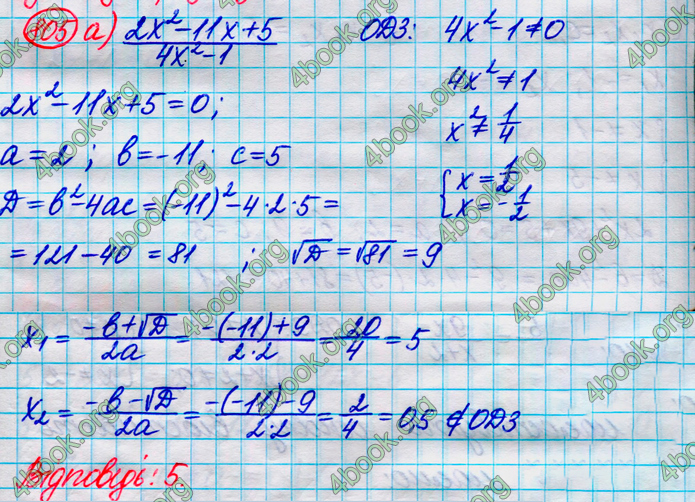 805 а) (2x²-11x+5)/(4x²-1) ОДЗ: 4x²-1≠0
4x²≠1
2x²-11x+5=0;
x²≠1/4
a=2; b=-11; c=5
{x=1/2
x=-1/2
D=b²-4ac=(-11)²-4·2·5=
=121-40=81; √D=√81=9
x₁=(-b+√D)/2a=(-(-11)+9)/(2·2)=20/4=5
x₂=(-b-√D)/2a=(-(-11)-9)/(2·2)=2/4=0,5 ∉ ОДЗ
Відповідь: 5
4book.org